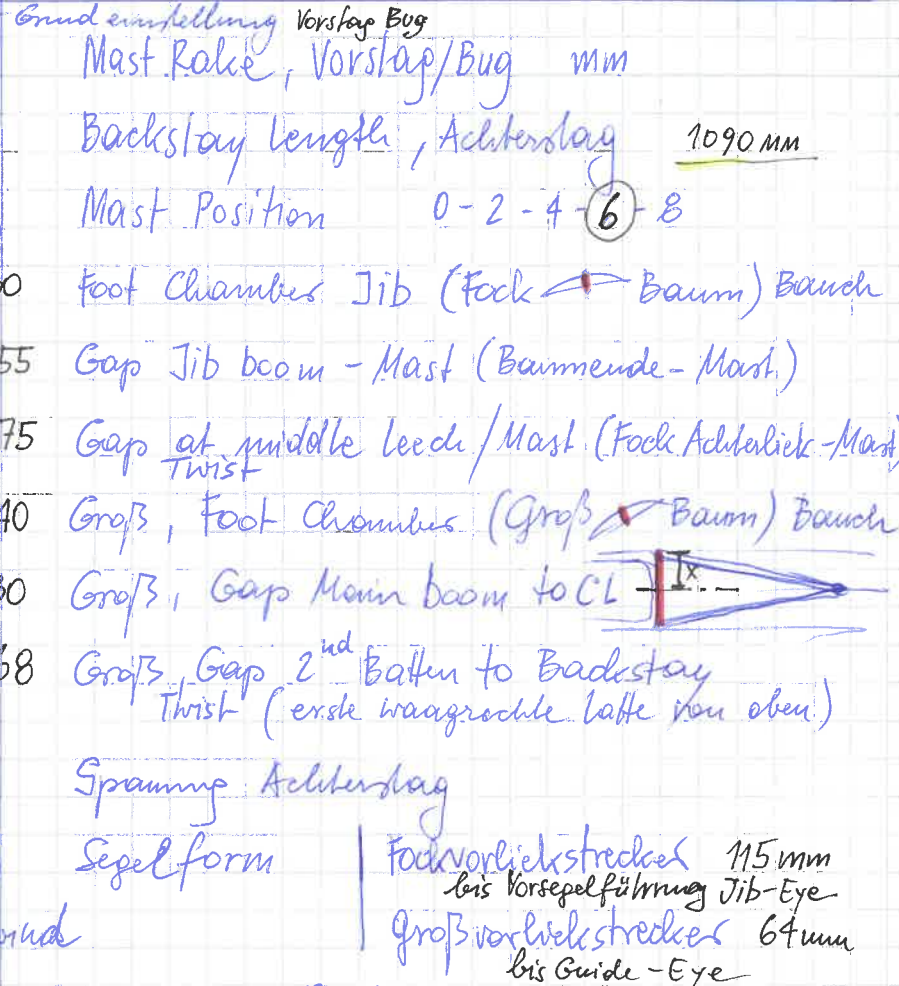 Grundeinstellung Vorstag Bug
Mast Rake, Vorstag/Bug mm
Backstay length, Achterstag 1090 mm
Mast Position 0-2-4-6-8
0 Foot Chamber Jib (Fock Baum) Bauch
55 Gap Jib boom - Mast (Baumende - Mast)
75 Gap at middle leech/Mast (Fock Achterliek-Mast)
Twist
40 Groß, Foot Chamber (Groß Baum) Bauch
0 Groß, Gap Main boom to CL x
68 Groß, Gap 2nd Batten to Backstay
Twist (erste waagrechte Latte von oben)
Spannung Achterstag
Segelform Fockvorliekstrecker 115 mm
bis Vorsegelführung Jib-Eye
Großvorliekstrecker 64 mm
bis Guide-Eye